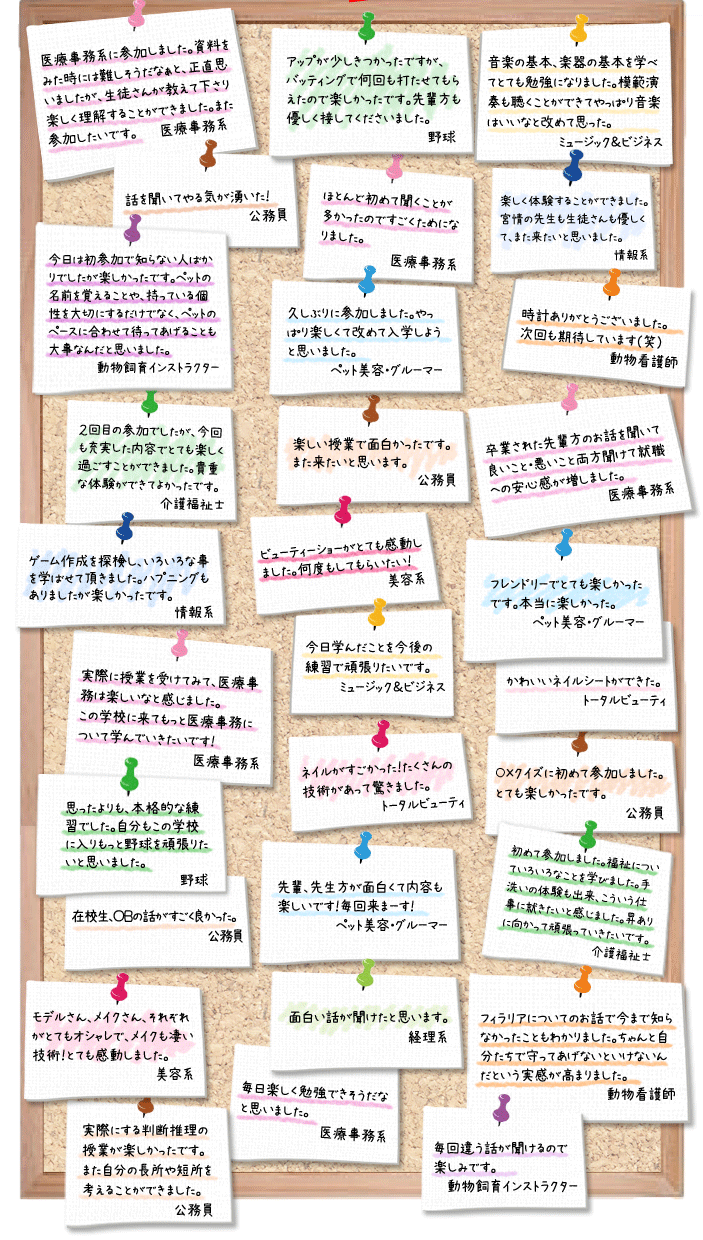 医療事務系に参加しました。資料を
みた時には難しそうだなぁと、正直思
いましたが、生徒さんが教えて下さり
楽しく理解することができました。また
参加したいです。
医療事務系
アップが少しきつかったですが、
バッティングで何回も打たせてもら
えたので楽しかったです。先輩方も
優しく接してくださいました。
野球
音楽の基本、楽器の基本を学べ
てとても勉強になりました。模範演
奏も聴くことができてやっぱり音楽
はいいなと改めて思った。
ミュージック&ビジネス
話を聞いてやる気が湧いた!
公務員
ほとんど初めて聞くことが
多かったのですごくためにな
りました。
医療事務系
楽しく体験することができました。
宮情の先生も生徒さんも優しく
て、また来たいと思いました。
情報系
今日は初参加で知らない人ばか
りでしたが楽しかったです。ペットの
名前を覚えることや、持っている個
性を大切にするだけでなく、ペットの
ペースに合わせて待ってあげることも
大事なんだと思いました。
動物飼育インストラクター
久しぶりに参加しました。やっ
ぱり楽しくて改めて入学しよう
と思いました。
ペット美容・グルーマー
時計ありがとうございました。
次回も期待しています(笑)
動物看護師
2回目の参加でしたが、今回
も充実した内容でとても楽しく
過ごすことができました。貴重
な体験ができてよかったです。
介護福祉士
楽しい授業で面白かったです。
また来たいと思います。
公務員
卒業された先輩方のお話を聞いて
良いこと・悪いこと両方聞けて就職
への安心感が増しました。
医療事務系
ゲーム作成を探検し、いろいろな事
を学ばせて頂きました。ハプニングも
ありましたが楽しかったです。
情報系
ビューティーショーがとても感動し
ました。何度もしてもらいたい!
美容系
フレンドリーでとても楽しかった
です。本当に楽しかった。
ペット美容・グルーマー
今日学んだことを今後の
練習で頑張りたいです。
ミュージック&ビジネス
かわいいネイルシートができた。
トータルビューティ
実際に授業を受けてみて、医療事
務は楽しいなと感じました。
この学校に来てもっと医療事務に
ついて学んでいきたいです!
医療事務系
ネイルがすごかった!たくさんの
技術があって驚きました。
トータルビューティ
○×クイズに初めて参加しました。
とても楽しかったです。
公務員
思ったよりも、本格的な練
習でした。自分もこの学校
に入りもっと野球を頑張りた
いと思いました。
野球
先輩、先生方が面白くて内容も
楽しいです!毎回来まーす!
ペット美容・グルーマー
初めて参加しました。福祉につい
ていろいろなことを学びました。手
洗いの体験も出来、こういう仕
事に就きたいと感じました。昇あり
に向かって頑張っていきたいです。
介護福祉士
在校生、OBの話がすごく良かった。
公務員
モデルさん、メイクさん、それぞれ
がとてもオシャレで、メイクも凄い
技術!とても感動しました。
美容系
面白い話が聞けたと思います。
経理系
フィラリアについてのお話で今まで知ら
なかったこともわかりました。ちゃんと自
分たちで守ってあげないといけないん
だという実感が高まりました。
動物看護師
毎日楽しく勉強できそうだな
と思いました。
医療事務系
実際にする判断推理の
授業が楽しかったです。
また自分の長所や短所を
考えることができました。
公務員
毎回違う話が聞けるので
楽しみです。
動物飼育インストラクター